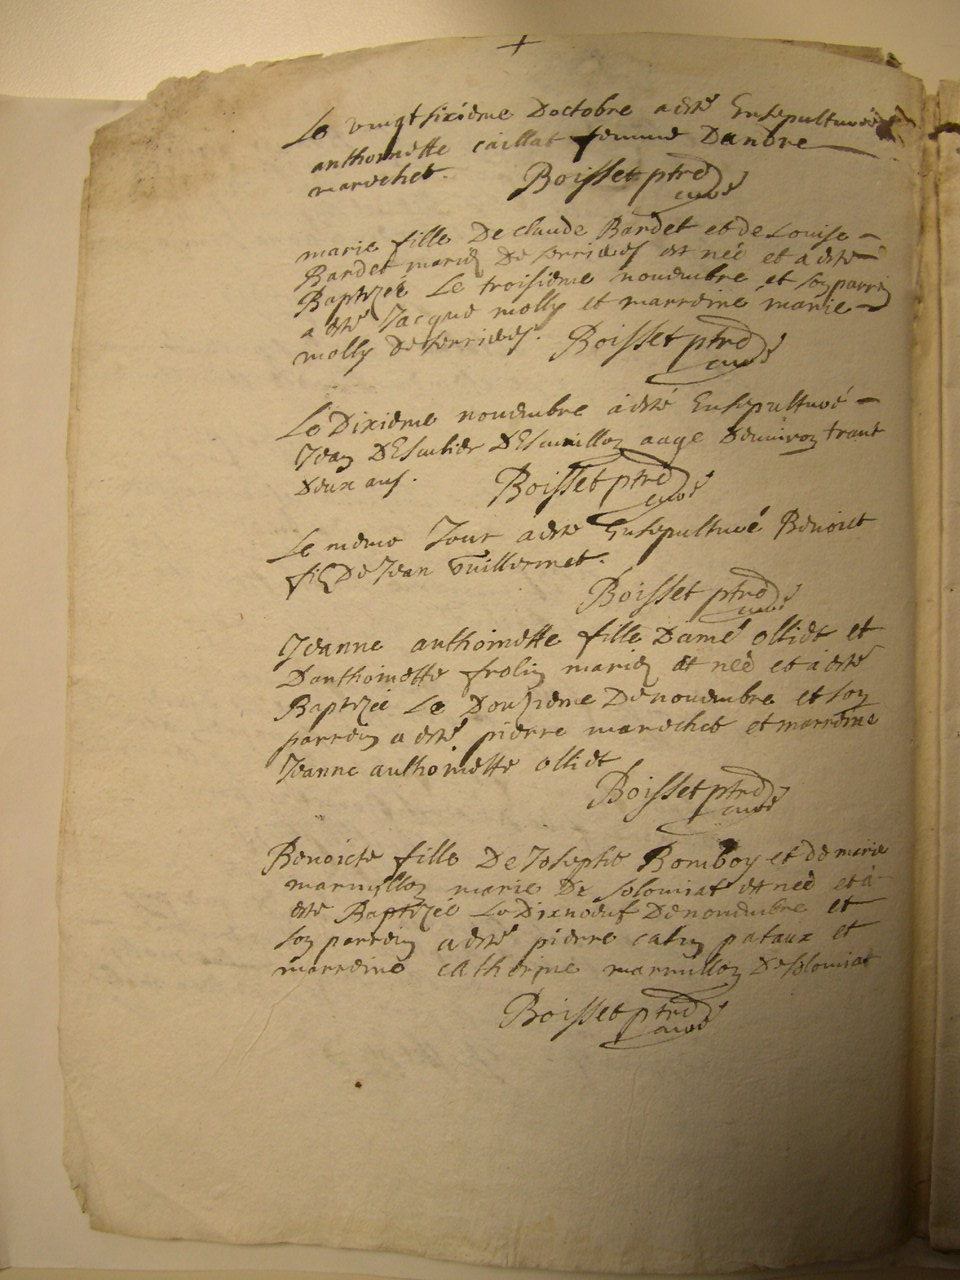 +
Le vingtsixiéme Doctobre a esté Ensepulturée
anthoinette caillat femme Dandre
marechet. Boisset ptre
curé
marie fille De claude Bardet et de Louise
Bardet mariez De serrieres est née et a esté
Baptizée Le troisiéme nouembre et son parrin
a esté Jacque molly et marreine marie
molly De serrieres. Boisset ptre
curé
Le Dixiéme nouembre a esté Ensepulturé
Jean aagé Denuiron trant
deux ans. Boisset ptre
curé
Le meme Jour a esté Ensepulturé Benoict
fils De Jean Vuillermet.
Boisset ptre
curé
Jeanne anthoinette fille Damé olliet et
Danthoinette frolin mariez est née et a esté
Baptizée Le Douziéme De nouembre et son
parrein a esté pierre marechet et marreine
Jeanne anthoinette olliet
Boisset ptre
curé
Benoicte fille De Josepho Romboy et de marie
marmillon marie De solomiat est née et a
esté Baptizée Le Dixneuf De nouembre et
son parrein a esté pierre pataux et
marreine catherine marmillon De solomiat
Boisset ptre
curé